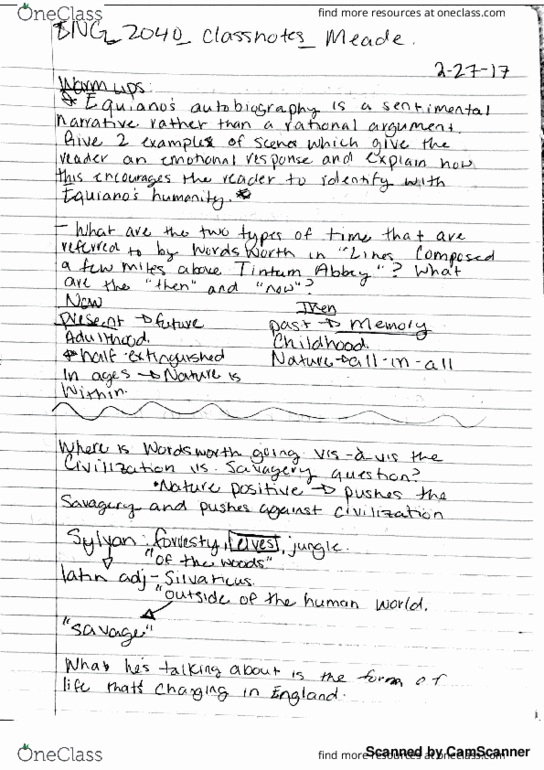 OneClass
find more resources at oneclass.com
ENG_2040_Classnotes_Meade.
2-27-17
Warm ups:
* Equiano's autobiography is a sentimental
narrative rather than a rational argument.
Give 2 examples of scenes which give the
reader an emotional response and explain how
this encourages the reader to identify with
Equiano's humanity. *
- What are the two types of time that are
referred to by Wordsworth in "Lines Composed
a few miles above Tintern Abbey"? What
are the "then" and "now"?
Now Then
Present → future past → Memory
Adulthood. Childhood.
half-extinguished Nature → all-in-all
In ages → Nature is
Within.
Where is Wordsworth going vis-à-vis the
Civilization vs. Savagery question?
• Nature positive → pushes the
Savagery and pushes against civilization
Sylvan: forresty, elvest, jungle.
"of the woods"
latin adj - Silvaticus
"outside of the human world.
"savage"
What he's talking about is the form of
life that's changing in England.
OneClass
find more resources at oneclass.com
Scanned by CamScanner